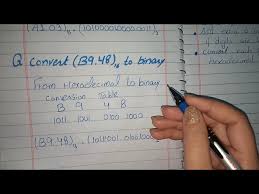 (A1.03)₁₆ = (10100001.00000011)₂
Q convert (B9.48)₁₆ to binary
From Hexadecimal to binary
Conversion Table
B 9 4 8
1011 1001 0100 1000
(B9.48)₁₆ = (10111001.0100100
if
4 digits
convert each
hexadecimal